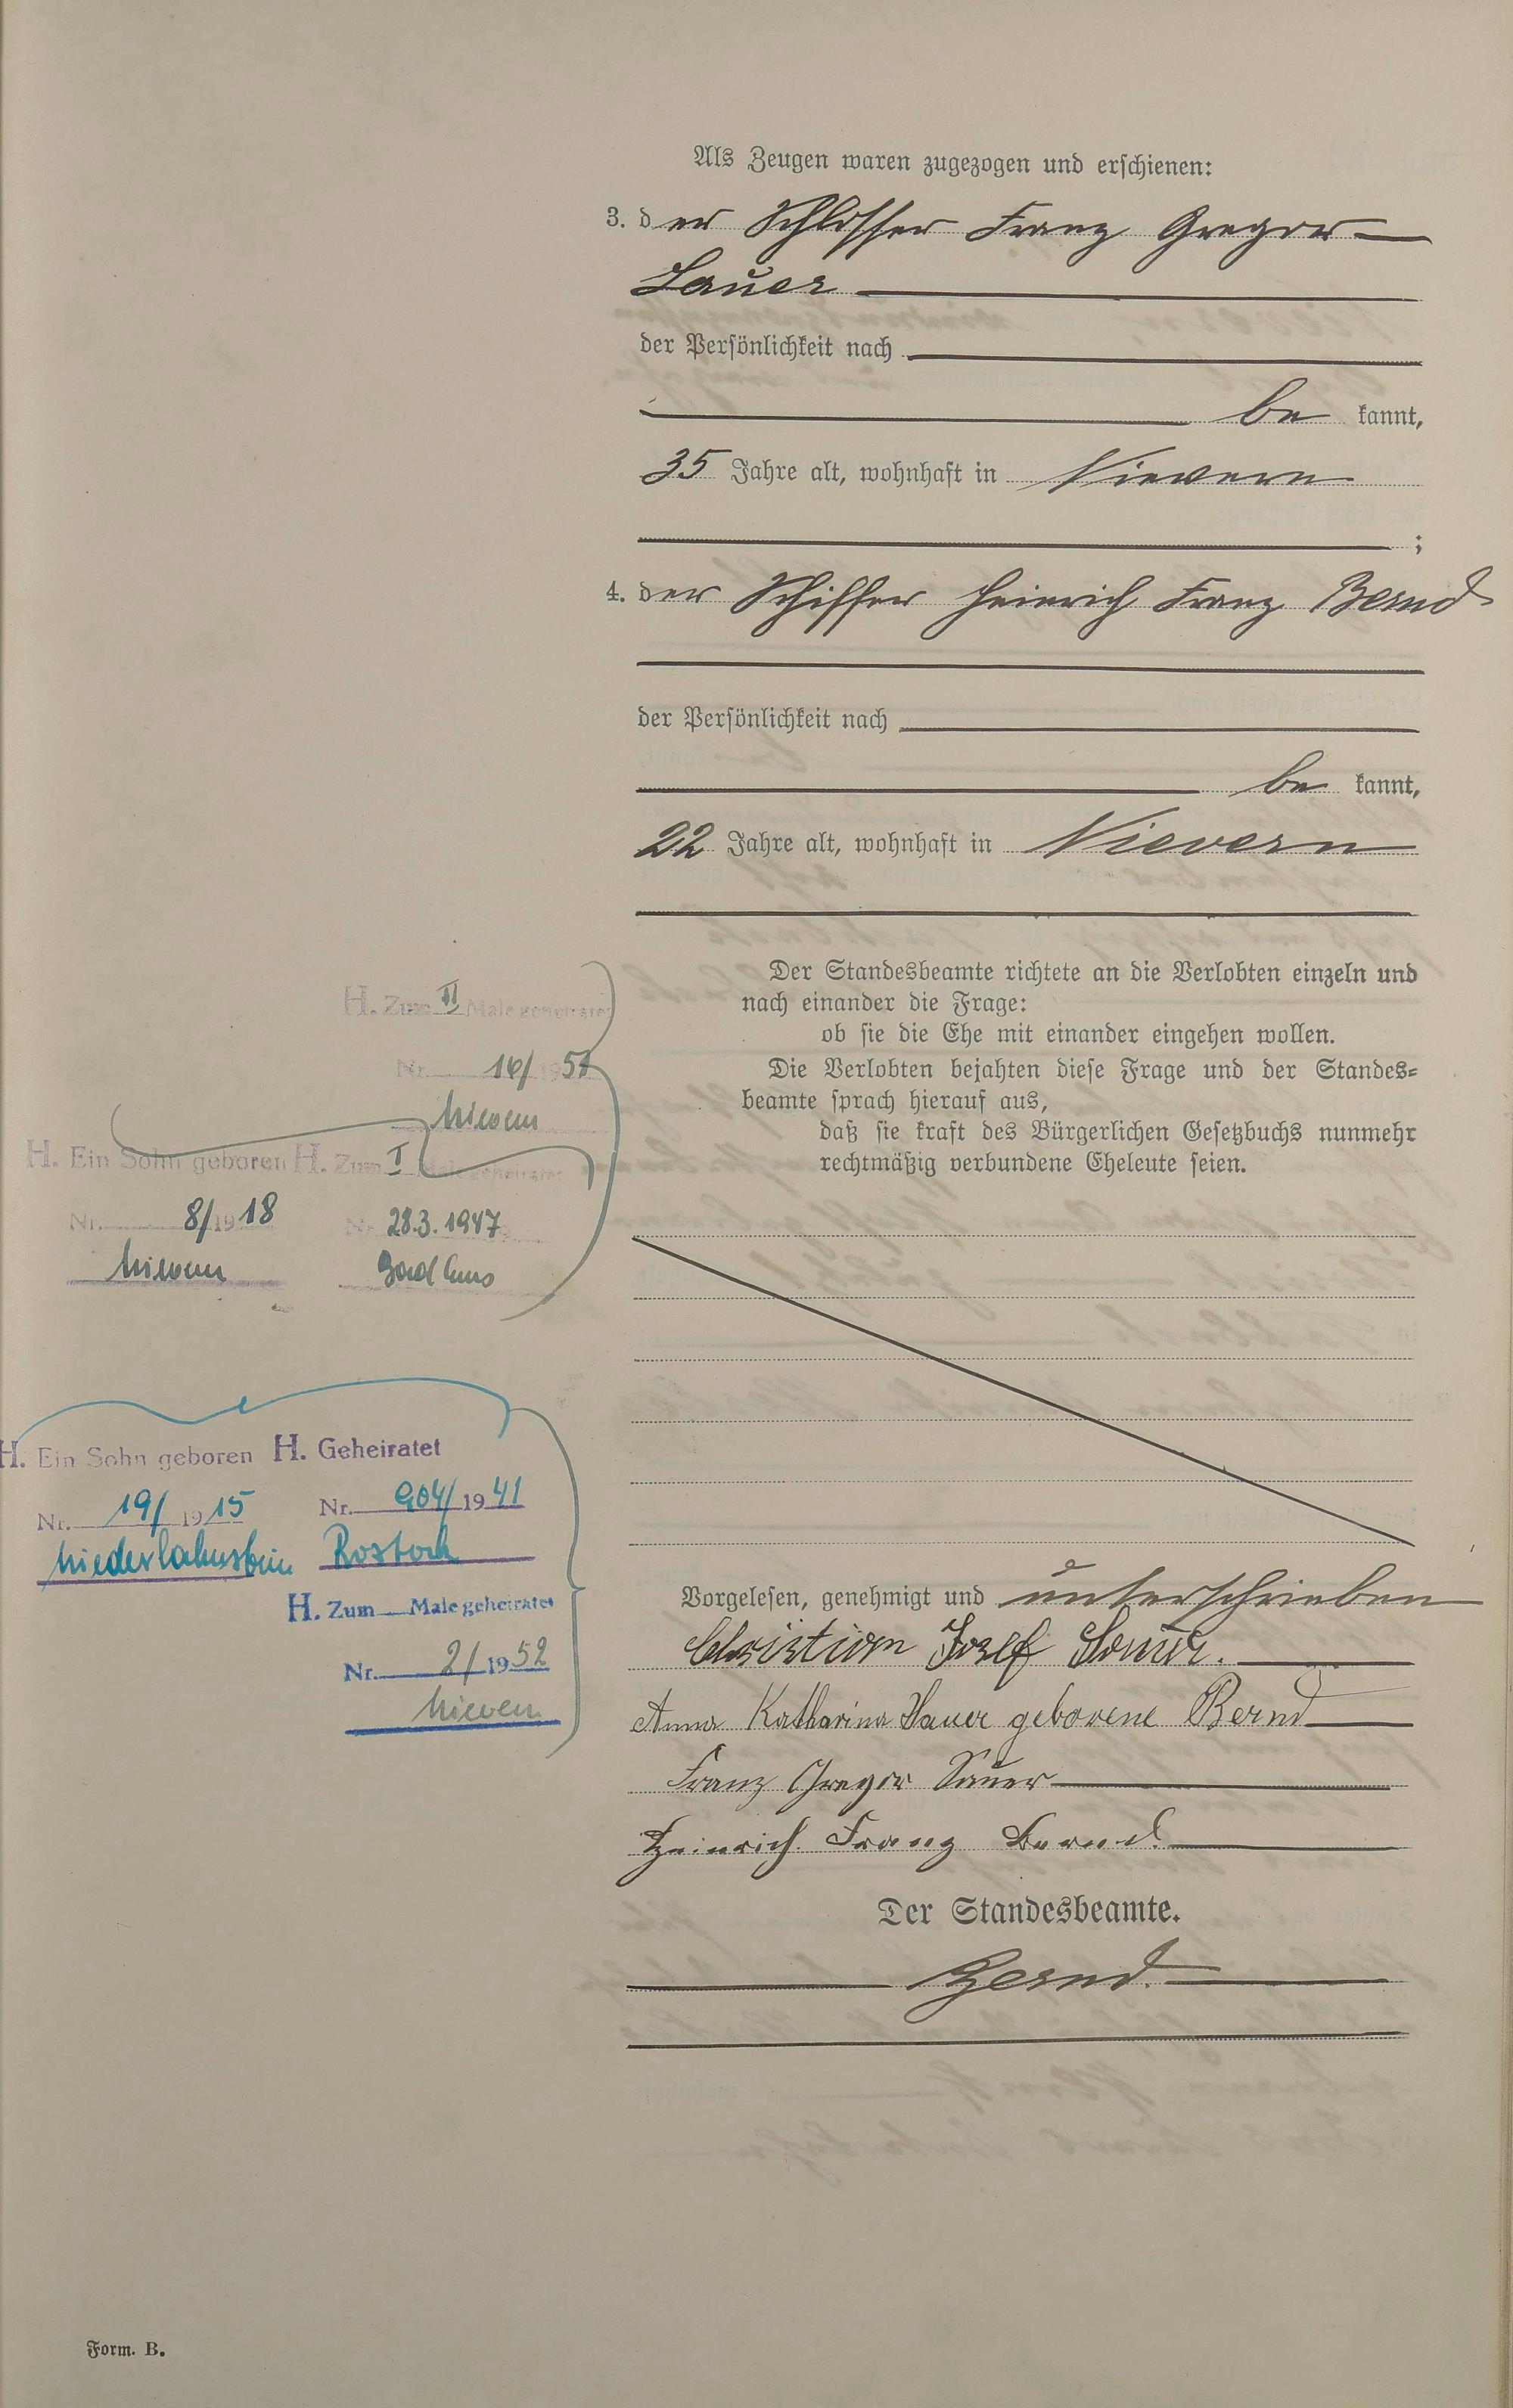 Als Zeugen waren zugezogen und erschienen:
3. der Schlosser Franz Gregor
Sauer
der Persönlichkeit nach
be kannt,
35 Jahre alt, wohnhaft in Nievern
;
4. der Schiffer Heinrich Franz Bernd
der Persönlichkeit nach
be kannt,
22 Jahre alt, wohnhaft in Nievern
Der Standesbeamte richtete an die Verlobten einzeln und
nach einander die Frage:
ob sie die Ehe mit einander eingehen wollen.
Die Verlobten bejahten diese Frage und der Standes=
beamte sprach hierauf aus,
daß sie kraft des Bürgerlichen Gesetzbuchs nunmehr
rechtmäßig verbundene Eheleute seien.
Vorgelesen, genehmigt und unterschrieben
Christian Josef Sauer.
Anna Katharina Sauer geborene Bernd
Franz Gregor Sauer
Heinrich Franz Bernd.
Der Standesbeamte.
Bernd.
H. Zum II Male geheiratet
Nr. 16/1957
Nievern
H. Ein Sohn geboren
Nr. 8/1918
Nievern
H. Zum I Male geheiratet
Nr. 28.3.1947
Bad Ems
H. Ein Sohn geboren
Nr. 19/1915
Niederlahnstein
H. Geheiratet
Nr. 904/1941
Rostock
H. Zum Male geheiratet
Nr. 2/1952
Nievern
Form. B.